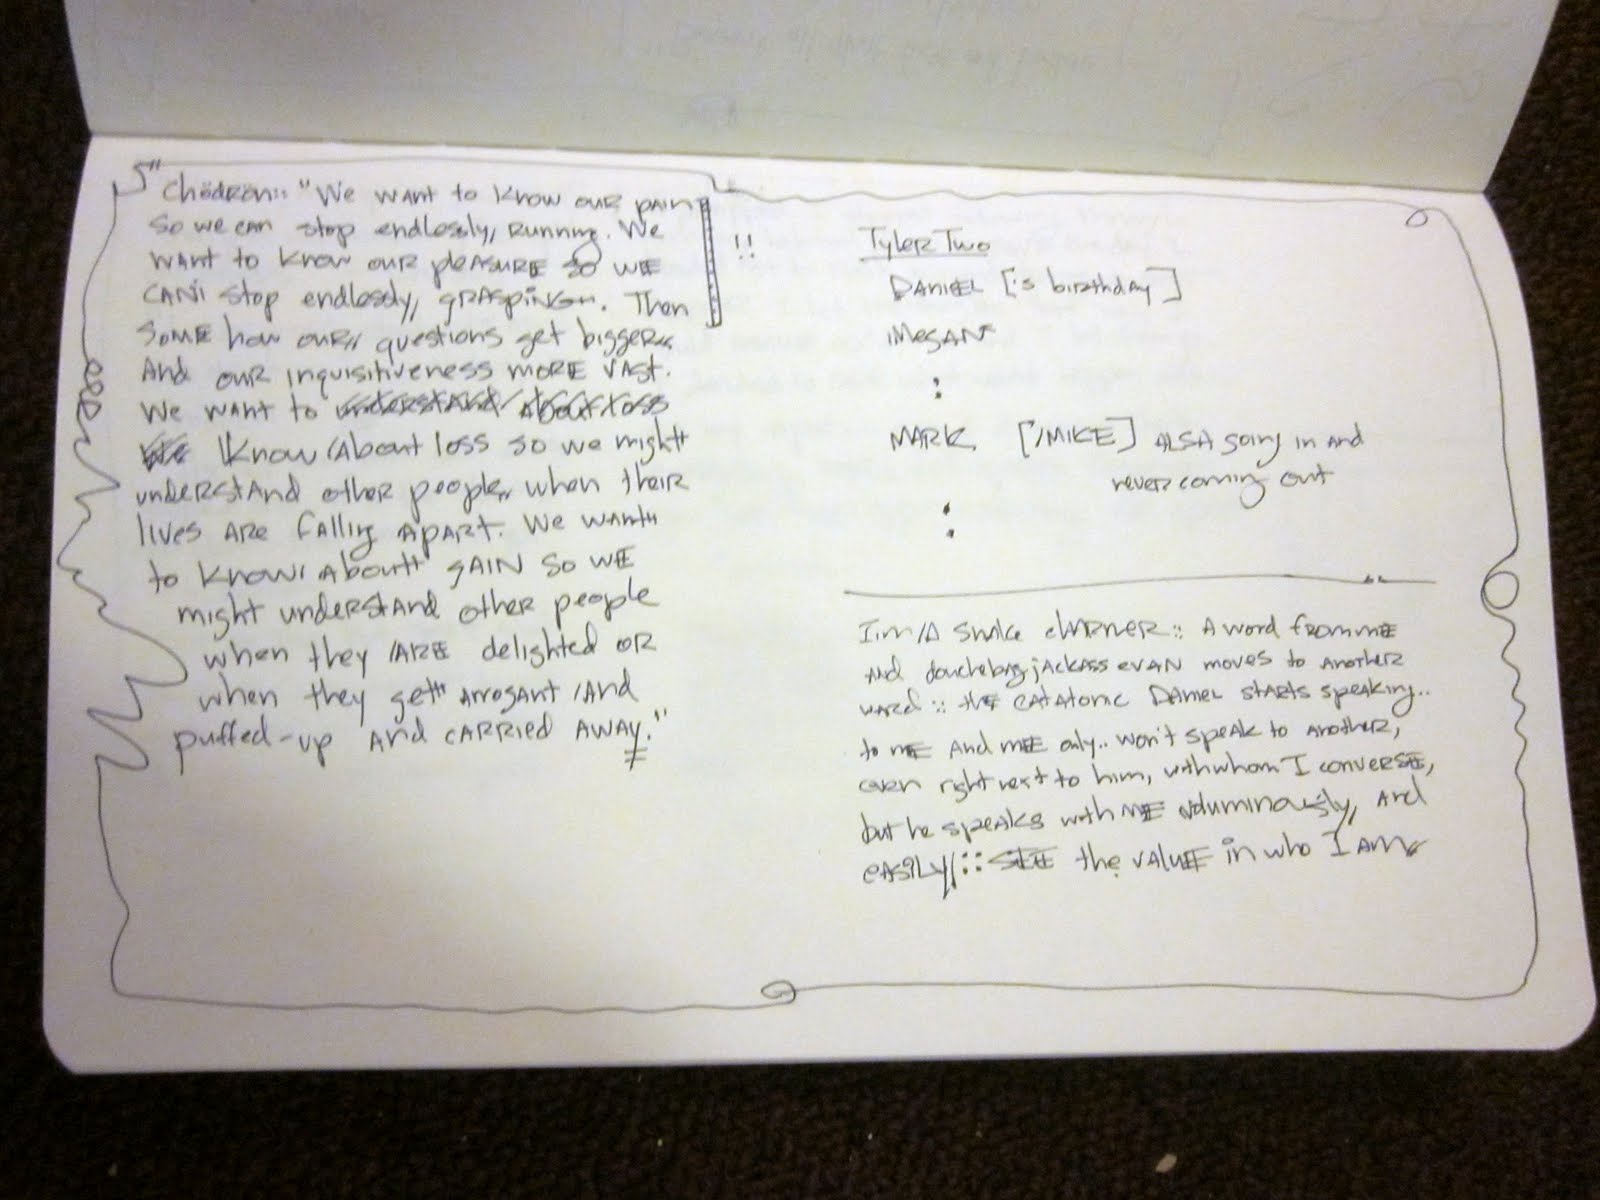 Chödrön:: "We want to know our pain
so we can stop endlessly, running. We
want to know our pleasure so we
can stop endlessly, grasping. Then
some how our,, questions get bigger,,
and our inquisitiveness more vast.
We want to understand about loss
know about loss so we might
understand other people,, when their
lives are falling apart. We want
to know about gain so we
might understand other people
when they are delighted or
when they get arrogant and
puffed-up and carried away."
!!
Tyler Two
Daniel ['s birthday]
Megan
:
Mark [/Mike] also going in and
never coming out
:
I'm a snake charmer :: A word from me
and douchebag jackass Evan moves to another
ward :: the catatonic Daniel starts speaking..
to me and me only.. won't speak to another,
even right next to him, with whom I converse,
but he speaks with me voluminously, and
easily :: see the value in who I am,,